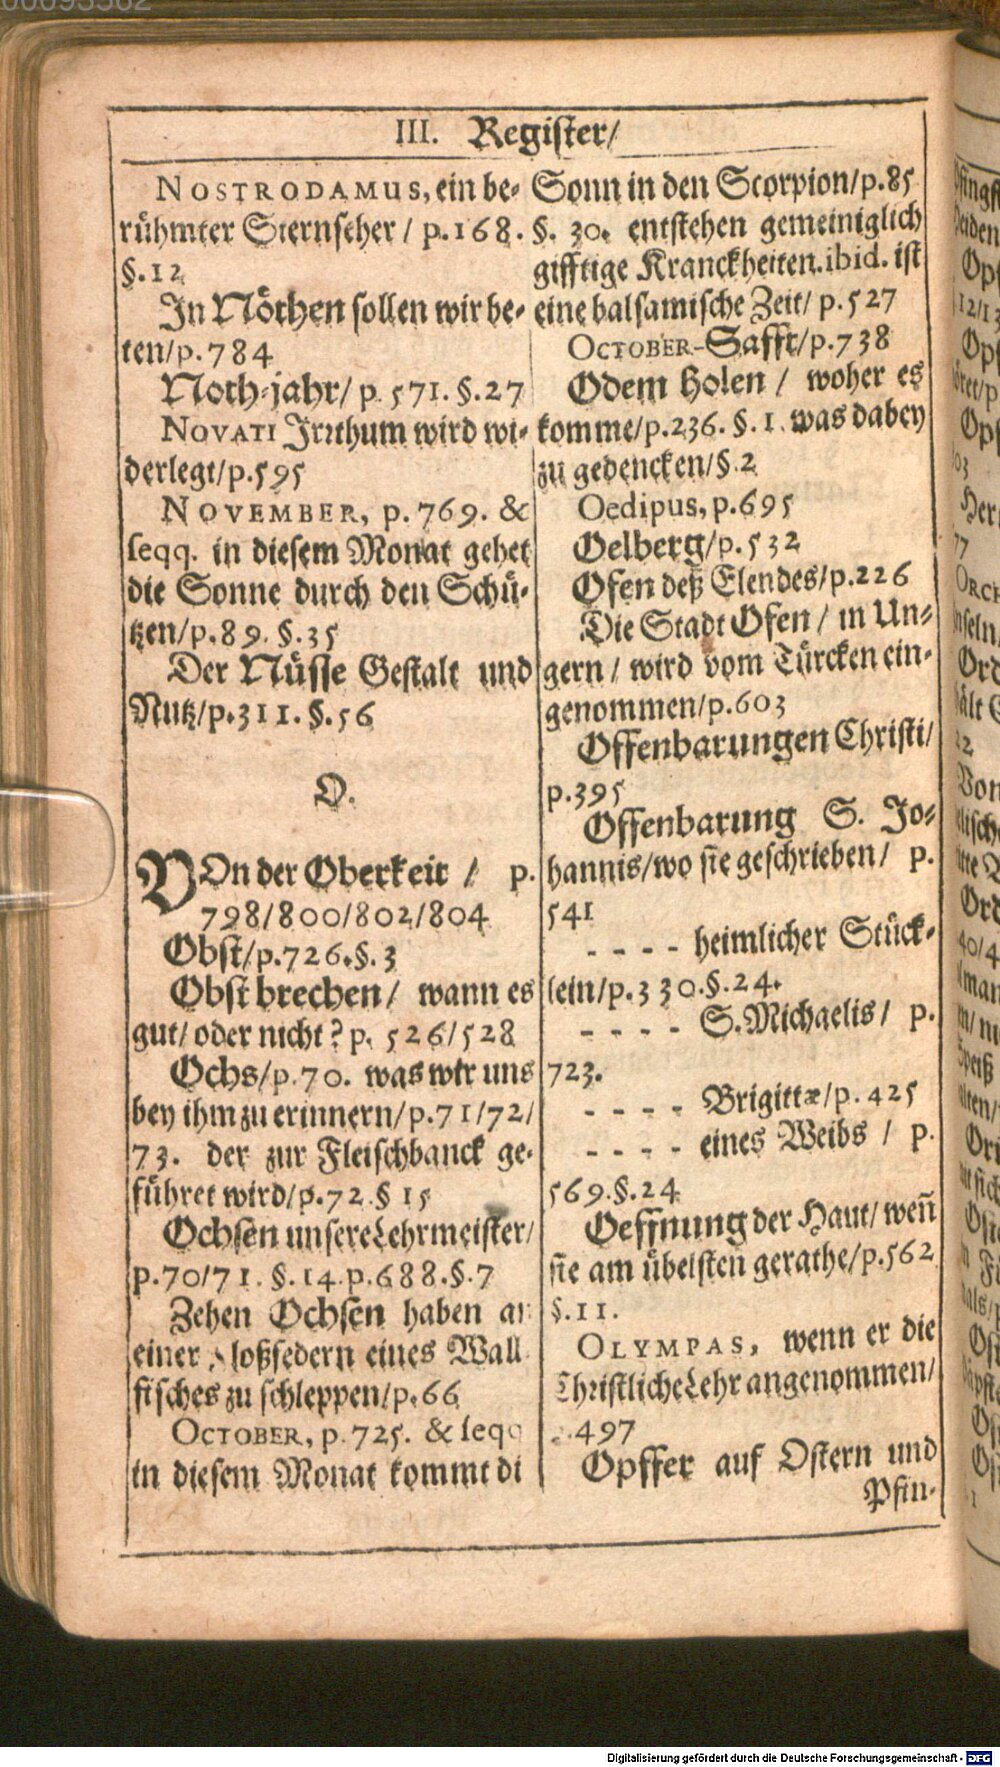 III. Register/
NOSTRODAMUS, ein be-
rühmter Sternseher / p.168.
§.12
In Nöthen sollen wir be-
ten/p.784
Noth-jahr/ p. 571. §.27
NOVATI Irrthum wird wi-
derlegt/p.595
NOVEMBER, p.769. &
seqq. in diesem Monat gehet
die Sonne durch den Schü-
tzen/p.89. §.35
Der Nüsse Gestalt und
Nutz/p.311. §.56
O.
VOn der Oberkeit / p.
798/800/802/804
Obst/p.726.§.3
Obst brechen/ wann es
gut/ oder nicht? p. 526/528
Ochs/p.70. was wir uns
bey ihm zu erinnern/p.71/72/
73. der zur Fleischbanck ge-
führet wird/p.72.§ 15
Ochsen unsere Lehrmeister/
p.70/71. §.14.p.688.§.7
Zehen Ochsen haben an
einer loßfedern eines Wall
fisches zu schleppen/p.66
OCTOBER, p.725. & seqq
in diesem Monat kommt di
Sonn in den Scorpion/p.85
§. 30. entstehen gemeiniglich
gifftige Kranckheiten.ibid. ist
eine balsamische Zeit/ p.527
OCTOBER-Safft/p.738
Odem holen / woher es
komme/p.236. §.1. was dabey
zu gedencken/§.2
Oedipus, p.695
Oelberg/p.532
Ofen deß Elendes/p.226
Die Stadt Ofen / in Un-
gern / wird vom Türcken ein-
genommen/p.603
Offenbarungen Christi/
p.395
Offenbarung S. Jo-
hannis/wo sie geschrieben/ p.
541
- - - - heimlicher Stück-
lein/p.330.§.24.
- - - - S. Michaelis/ p.
723.
- - - - Brigittæ/p.425
- - - - eines Weibs / p.
569.§.24
Oeffnung der Haut/ weñ
sie am übelsten gerathe/p.562
§.11.
OLYMPAS, wenn er die
Christliche Lehr angenommen/
.497
Opffer auf Ostern und
Pfin-
Digitalisierung gefördert durch die Deutsche Forschungsgemeinschaft - DFG